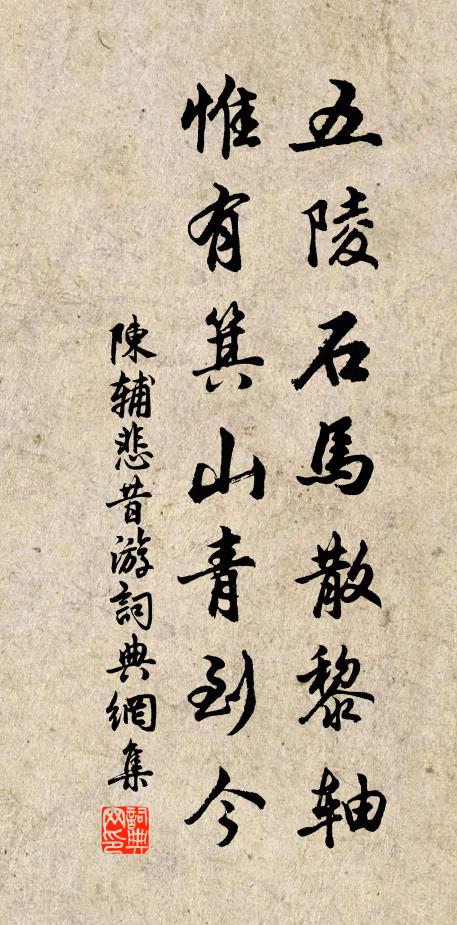 五陵石馬散黎軸
惟有箕山青到今
陳辅悲昔游詞典網集
詞典网印